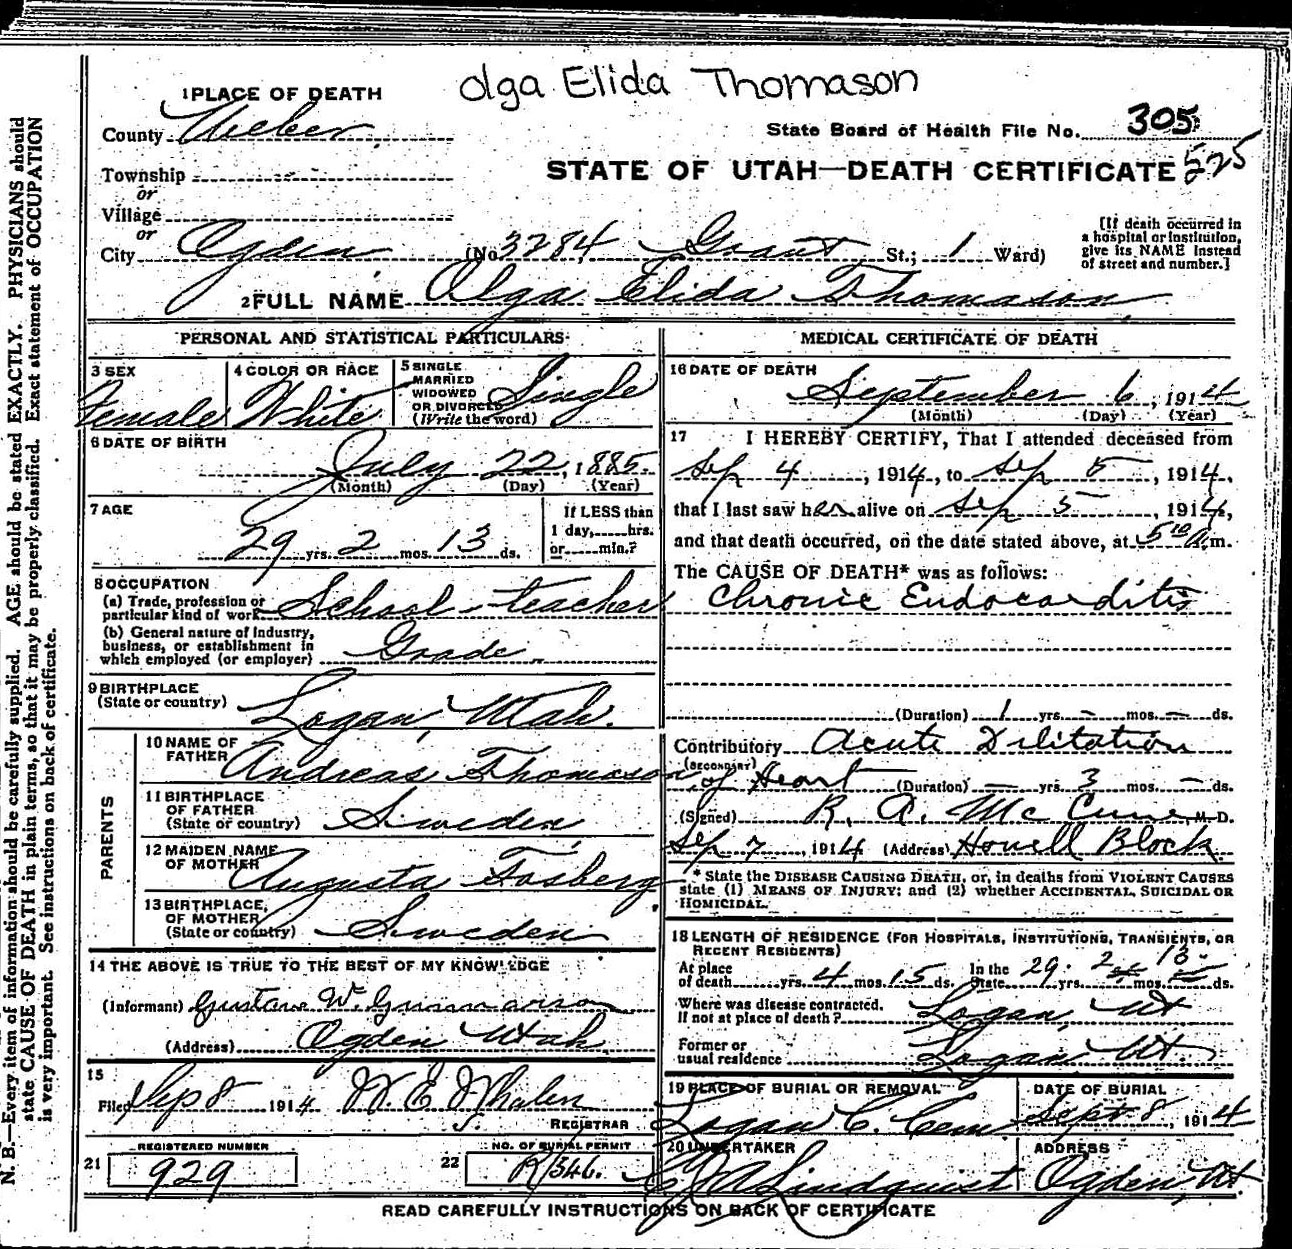 Olga Elida Thomason
1 PLACE OF DEATH
County Weber
State Board of Health File No. 305
STATE OF UTAH—DEATH CERTIFICATE 525
Township
or
Village
or
City Ogden (No 3284 Grant St.; 1 Ward)
[If death occurred in a hospital or institution, give its NAME instead of street and number.]
2 FULL NAME Olga Elida Thomason
PERSONAL AND STATISTICAL PARTICULARS
3 SEX Female
4 COLOR OR RACE White
5 SINGLE MARRIED WIDOWED OR DIVORCED (Write the word) Single
6 DATE OF BIRTH
July 22, 1885.
(Month) (Day) (Year)
7 AGE
29 yrs. 2 mos. 13 ds.
If LESS than 1 day, hrs. or min.?
8 OCCUPATION
(a) Trade, profession or particular kind of work School-teacher
(b) General nature of industry, business, or establishment in which employed (or employer) Grade
9 BIRTHPLACE (State or country) Logan, Utah.
PARENTS
10 NAME OF FATHER Andreas Thomason
11 BIRTHPLACE OF FATHER (State or country) Sweden
12 MAIDEN NAME OF MOTHER Augusta Fosberg
13 BIRTHPLACE OF MOTHER (State or country) Sweden
14 THE ABOVE IS TRUE TO THE BEST OF MY KNOWLEDGE
(Informant) Gustave W. Gunnarson
(Address) Ogden Utah
15
Filed Sep 8 1914 W. E. Whalen
REGISTRAR
REGISTERED NUMBER
21 929
NO. OF BURIAL PERMIT
22 R/346.
MEDICAL CERTIFICATE OF DEATH
16 DATE OF DEATH
September 6, 1914
(Month) (Day) (Year)
17 I HEREBY CERTIFY, That I attended deceased from
Sep 4, 1914, to Sep 5, 1914,
that I last saw her alive on Sep 5, 1914,
and that death occurred, on the date stated above, at 5 10 A.m.
The CAUSE OF DEATH* was as follows:
Chronic Endocarditis
(Duration) 1 yrs. – mos. – ds.
Contributory Acute Dilitation
(SECONDARY)
of Heart (Duration) – yrs. 3 mos. – ds.
(Signed) R. A. McCune, M. D.
Sep 7, 1914 (Address) Howell Block.
* State the DISEASE CAUSING DEATH, or, in deaths from VIOLENT CAUSES
state (1) MEANS OF INJURY; and (2) whether ACCIDENTAL, SUICIDAL OR
HOMICIDAL.
18 LENGTH OF RESIDENCE (FOR HOSPITALS, INSTITUTIONS, TRANSIENTS, OR
RECENT RESIDENTS)
At place of death yrs. 4 mos. 15 ds. In the State 29 yrs. 2 mos. 13 ds.
Where was disease contracted, If not at place of death? Logan Ut
Former or usual residence Logan Ut.
19 PLACE OF BURIAL OR REMOVAL
Logan C. Cem
DATE OF BURIAL
Sept 8, 1914
20 UNDERTAKER
Lindquist
ADDRESS
Ogden, Ut.
READ CAREFULLY INSTRUCTIONS ON BACK OF CERTIFICATE
N. B.—Every item of information should be carefully supplied. AGE should be stated EXACTLY. PHYSICIANS should
state CAUSE OF DEATH in plain terms, so that it may be properly classified. Exact statement of OCCUPATION
is very important. See instructions on back of certificate.